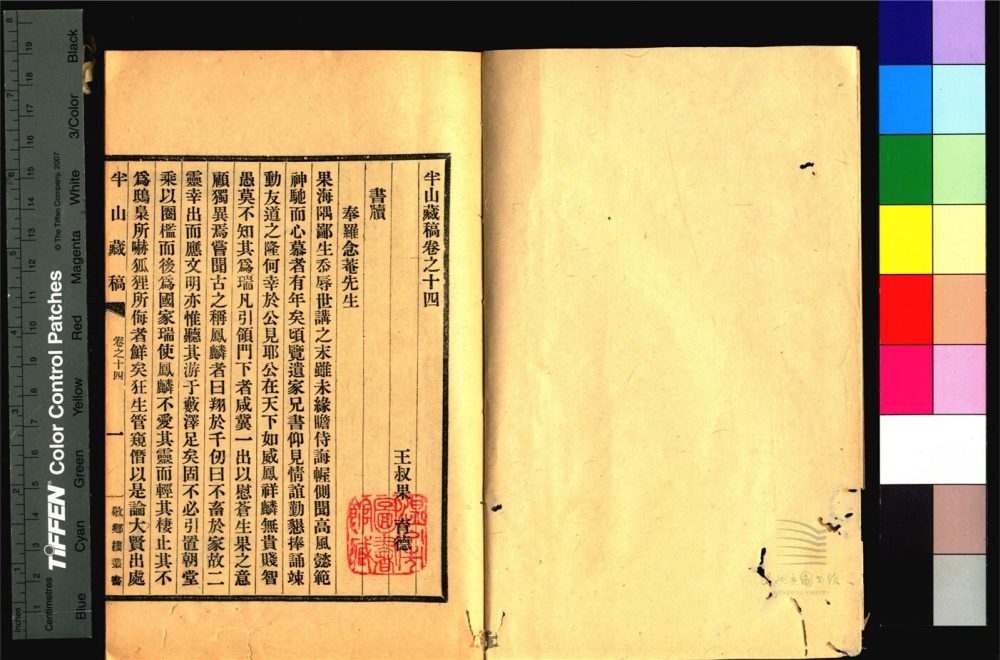 半山藏稿卷之十四
王叔果 育德
書牘
奉羅念菴先生
果海隅鄙生忝辱世講之末雖未緣瞻侍誨幄側聞高風懿範
神馳而心慕者有年矣頃覽遺家兄書仰見情誼勤懇捧誦竦
動友道之隆何幸於公見耶公在天下如威鳳祥麟無貴賤智
愚莫不知其爲瑞凡引領門下者咸冀一出以慰蒼生果之意
顧獨異焉嘗聞古之稱鳳麟者曰翔於千仞曰不畜於家故二
靈幸出而應文明亦惟聽其游于藪澤足矣固不必引置朝堂
乘以圈檻而後爲國家瑞使鳳麟不愛其靈而輕其棲止其不
爲鴟梟所嚇狐狸所侮者鮮矣狂生管窺僭以是論大賢出處
半山藏稿 卷之十四 一 敬鄉樓叢書
溫州市圖書館藏
WENZHOU LIBRARY
Inches
Centimetres
TIFFEN® Color Control Patches
© The Tiffen Company, 2007
Blue Cyan Green Yellow Red Magenta White 3/Color Black